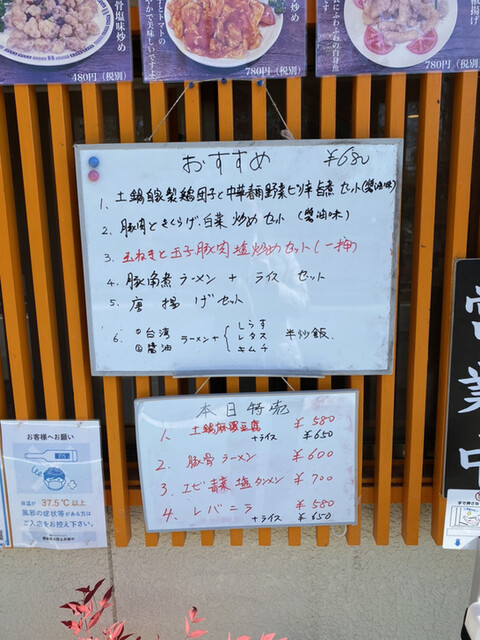 骨塩味炒め
480円(税別)
とトマトの
やかで美味しいですよ
780円(税別)
ふわふわの白身魚
780円(税別)
おすすめ ¥680
1. 土鍋自家製鶏団子と中華春雨野菜ピリ辛旨煮セット(醤油味)
2. 豚肉ときくらげ、白菜炒めセット(醤油味)
3. 玉ねぎと玉子豚肉塩炒めセット(一押)
4. 豚角煮ラーメン + ライス セット
5. 唐揚げセット
6. ①台湾 ②醤油 ラーメン + { しらす レタス キムチ 半炒飯
本日特売
1. 土鍋麻婆豆腐 ¥580
+ライス ¥650
2. 豚骨ラーメン ¥600
3. エビ青菜塩タンメン ¥700
4. レバニラ ¥580
+ライス ¥650
お客様へお願い
体温が 37.5℃以上
風邪の症状等がある方は
ご入店をお控え下さい。
営業中